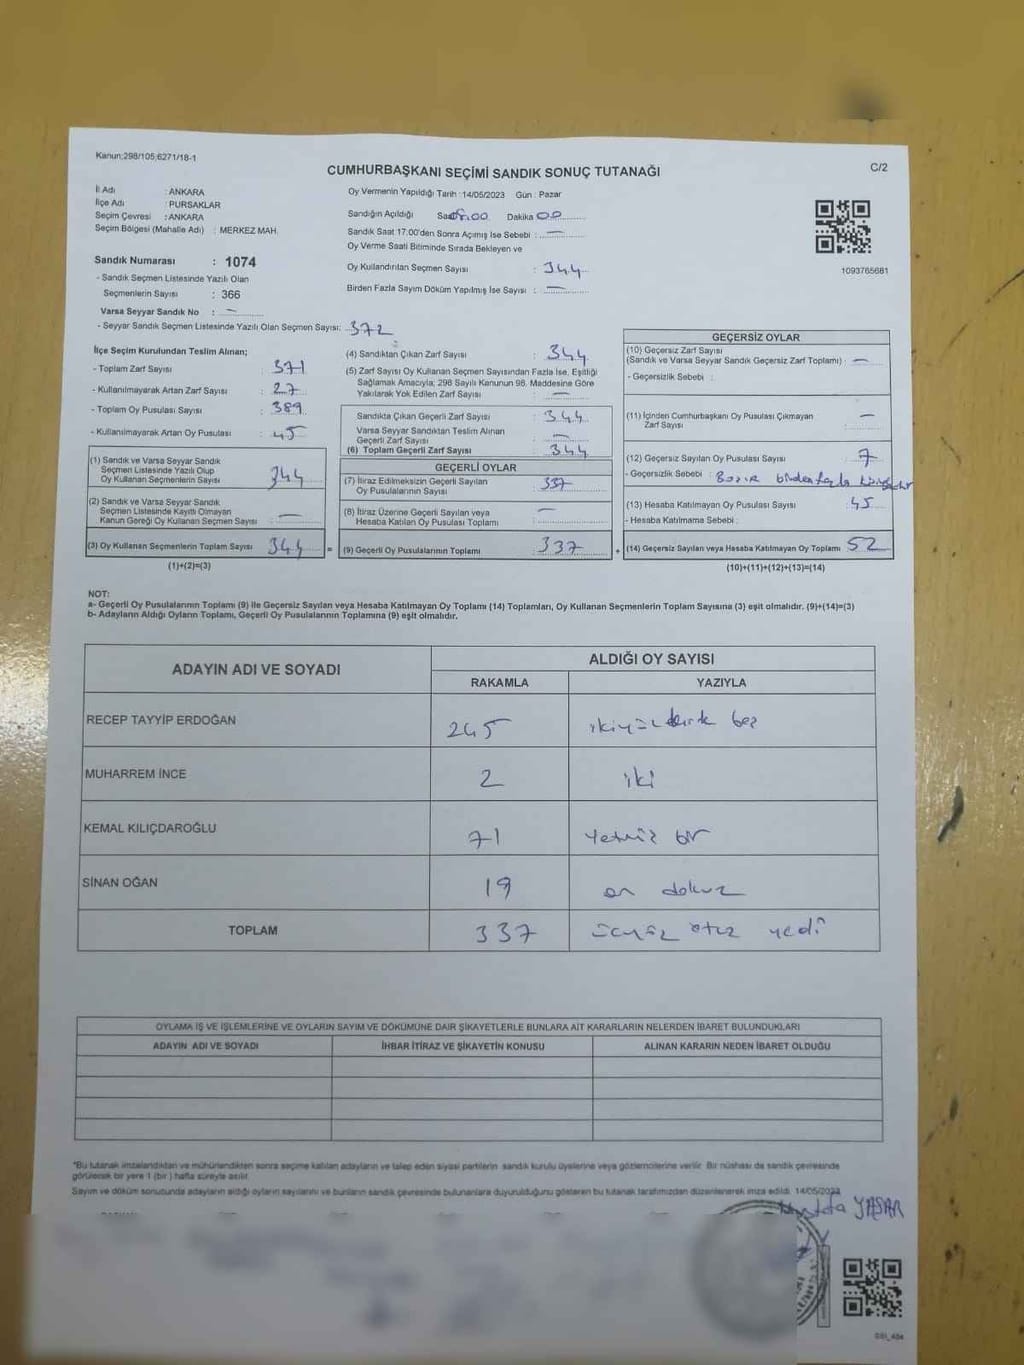 Kanun;298/105;6271/18-1
CUMHURBAŞKANI SEÇİMİ SANDIK SONUÇ TUTANAĞI
C/2
İl Adı : ANKARA
İlçe Adı : PURSAKLAR
Seçim Çevresi : ANKARA
Seçim Bölgesi (Mahalle Adı) : MERKEZ MAH.
Sandık Numarası : 1074
- Sandık Seçmen Listesinde Yazılı Olan
Seçmenlerin Sayısı : 366
Varsa Seyyar Sandık No : —
- Seyyar Sandık Seçmen Listesinde Yazılı Olan Seçmen Sayısı: 372
Oy Vermenin Yapıldığı Tarih : 14/05/2023 Gün : Pazar
Sandığın Açıldığı Saat 8.00 Dakika 00
Sandık Saat 17:00'den Sonra Açılmış İse Sebebi : —
Oy Verme Saati Bitiminde Sırada Bekleyen ve
Oy Kullandırılan Seçmen Sayısı : 344
Birden Fazla Sayım Döküm Yapılmış İse Sayısı : —
1093765681
İlçe Seçim Kurulundan Teslim Alınan;
- Toplam Zarf Sayısı : 371
- Kullanılmayarak Artan Zarf Sayısı : 27
- Toplam Oy Pusulası Sayısı : 389
- Kullanılmayarak Artan Oy Pusulası : 45
(1) Sandık ve Varsa Seyyar Sandık
Seçmen Listesinde Yazılı Olup
Oy Kullanan Seçmenlerin Sayısı 344
(2) Sandık ve Varsa Seyyar Sandık
Seçmen Listesinde Kayıtlı Olmayan
Kanun Gereği Oy Kullanan Seçmen Sayısı —
(3) Oy Kullanan Seçmenlerin Toplam Sayısı 344
(1)+(2)=(3)
(4) Sandıktan Çıkan Zarf Sayısı : 344
(5) Zarf Sayısı Oy Kullanan Seçmen Sayısından Fazla İse, Eşitliği
Sağlamak Amacıyla; 298 Sayılı Kanunun 98. Maddesine Göre
Yakılarak Yok Edilen Zarf Sayısı : —
Sandıkta Çıkan Geçerli Zarf Sayısı : 344
Varsa Seyyar Sandıktan Teslim Alınan
Geçerli Zarf Sayısı : —
(6) Toplam Geçerli Zarf Sayısı : 344
GEÇERLİ OYLAR
(7) İtiraz Edilmeksizin Geçerli Sayılan
Oy Pusulalarının Sayısı : 337
(8) İtiraz Üzerine Geçerli Sayılan veya
Hesaba Katılan Oy Pusulası Toplamı : —
= (9) Geçerli Oy Pusulalarının Toplamı : 337
GEÇERSİZ OYLAR
(10) Geçersiz Zarf Sayısı
(Sandık ve Varsa Seyyar Sandık Geçersiz Zarf Toplamı) : —
- Geçersizlik Sebebi :
(11) İçinden Cumhurbaşkanı Oy Pusulası Çıkmayan
Zarf Sayısı : —
(12) Geçersiz Sayılan Oy Pusulası Sayısı : 7
- Geçersizlik Sebebi : birden fazla
(13) Hesaba Katılmayan Oy Pusulası Sayısı : 45
- Hesaba Katılmama Sebebi :
+ (14) Geçersiz Sayılan veya Hesaba Katılmayan Oy Toplamı : 52
(10)+(11)+(12)+(13)=(14)
NOT:
a- Geçerli Oy Pusulalarının Toplamı (9) ile Geçersiz Sayılan veya Hesaba Katılmayan Oy Toplamı (14) Toplamları, Oy Kullanan Seçmenlerin Toplam Sayısına (3) eşit olmalıdır. (9)+(14)=(3)
b- Adayların Aldığı Oyların Toplamı, Geçerli Oy Pusulalarının Toplamına (9) eşit olmalıdır.
ADAYIN ADI VE SOYADI
ALDIĞI OY SAYISI
RAKAMLA YAZIYLA
RECEP TAYYİP ERDOĞAN 245 ikiyüz kırk beş
MUHARREM İNCE 2 iki
KEMAL KILIÇDAROĞLU 71 yetmiş bir
SİNAN OĞAN 19 on dokuz
TOPLAM 337 üçyüz otuz yedi
OYLAMA İŞ VE İŞLEMLERİNE VE OYLARIN SAYIM VE DÖKÜMÜNE DAİR ŞİKAYETLERLE BUNLARA AİT KARARLARIN NELERDEN İBARET BULUNDUKLARI
ADAYIN ADI VE SOYADI İHBAR İTİRAZ VE ŞİKAYETİN KONUSU ALINAN KARARIN NEDEN İBARET OLDUĞU
*Bu tutanak imzalandıktan ve mühürlendikten sonra seçime katılan adayların ve talep eden siyasi partilerin sandık kurulu üyelerine veya gözlemcilerine verilir. Bir nüshası da sandık çevresinde
görülecek bir yere 1 (bir) hafta süreyle asılır.
Sayım ve döküm sonucunda adayların aldığı oyların sayılarını ve bunların sandık çevresinde bulunanlara duyurulduğunu gösteren bu tutanak tarafımızdan düzenlenerek imza edildi. 14/05/2023
YAŞAR